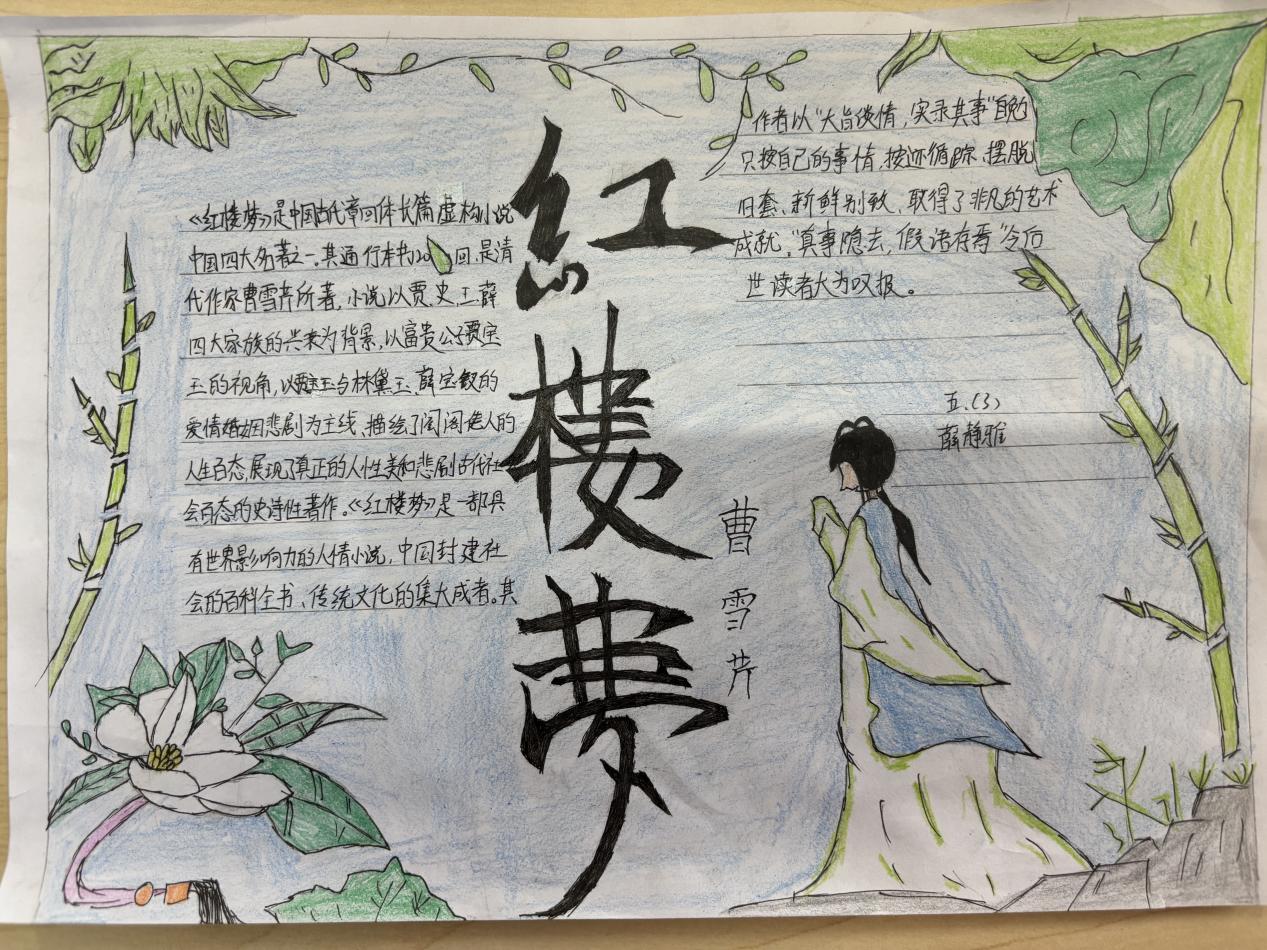 《红楼梦》是中国古代章回体长篇虚构小说
中国四大名著之一。其通行本书120回是清
代作家曹雪芹所著,小说以贾、史、王、薛
四大家族的兴衰为背景,以富贵公子贾宝
玉的视角,以贾宝玉与林黛玉、薛宝钗的
爱情婚姻悲剧为主线,描绘了闺阁佳人的
人生百态,展现了真正的人性美和悲剧古代社
会百态的史诗性著作。《红楼梦》是一部具
有世界影响力的人情小说,中国封建社
会的百科全书、传统文化的集大成者。其
紅樓夢
曹雪芹
作者以“大旨谈情,实录其事”自勉
只按自己的事情,按迹循踪、摆脱
旧套、新鲜别致、取得了非凡的艺术
成就。“真事隐去,假语存焉”令后
世读者大为叹报。
五.(3)
薛静雅